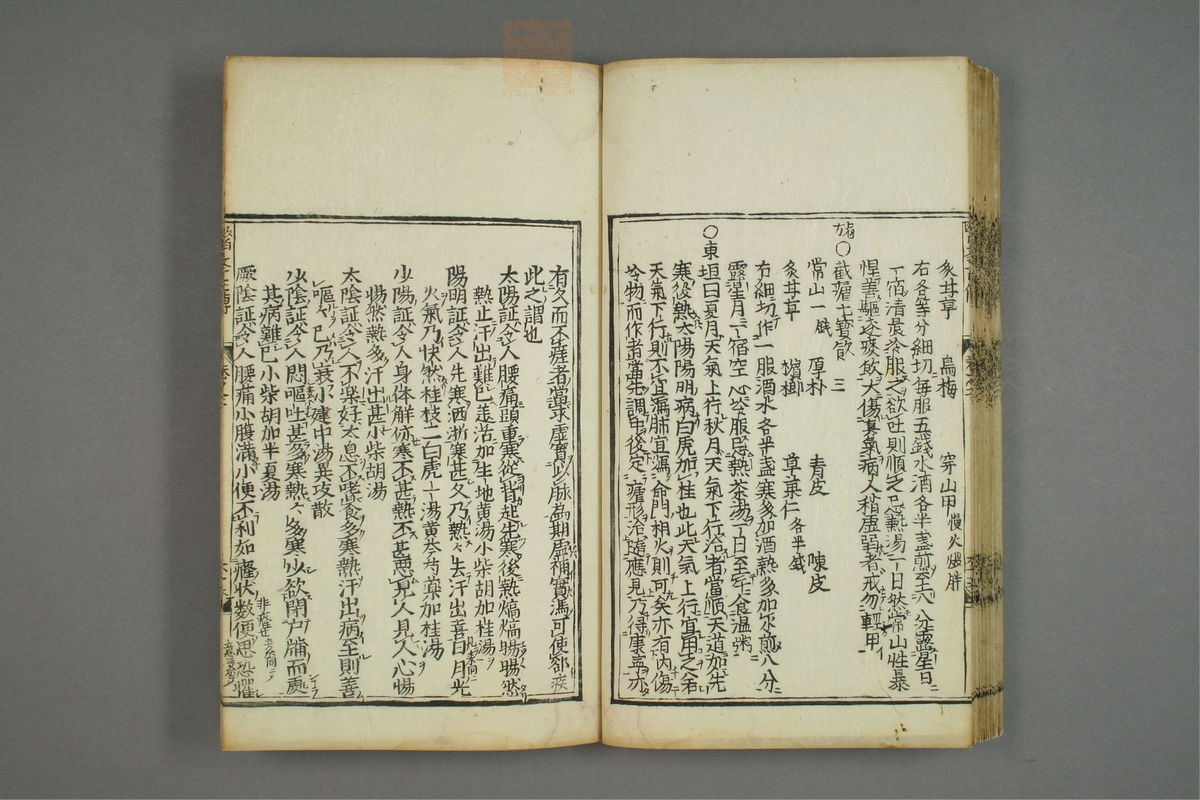 炙甘草 烏梅 穿山甲 慢火煨胖
右各等分細切毎服五錢水酒各半盞煎至八分露星月
一宿清晨冷服之欲吐則順之忌熱湯一日然常山性暴
悍善驅逐痰飲大傷真氣病人稍虚弱者戒勿輕用
局〇截瘧七寳飲 三
常山一錢 厚朴 青皮 陳皮
炙甘草 檳榔 草菓仁各半錢
右細切作一服酒水各半盞寒多加酒熱多加水煎八分
露星月一宿空心冷服忌熱茶湯一日至午食温粥
〇東垣曰夏月天氣上行秋月天氣下行治者當順天道如先
寒後熱太陽陽明病白虎加桂也此天氣上行宜用之若
天氣下行則不宜瀉肺宜瀉命門相火則可矣亦有内傷
冷物而作者當先調中後定瘧形治隨應見乃得康寧亦
有久而不瘥者當求虚實以脉為期虚補實瀉可使却疾
此之謂也
太陽証令人腰痛頭重寒從背起先寒後熱熇熇暍暍然
熱止汗出難已羌活加生地黄湯小柴胡加桂湯
陽明証令人先寒洒淅寒甚久乃熱々去汗出喜日月光
火氣乃快然桂枝二白虎一湯黄芩芍藥加桂湯
少陽証令人身体解㑊寒不甚熱不甚悪見人見人心惕
惕然熱多汗出甚小柴胡湯
太陰証令人不樂好太息不嗜食多寒熱汗出病至則善
嘔々已乃衰小建中湯異攻散
少陰証令人悶嘔吐甚多寒熱々多寒少欲閉户牖而處
其病難已小柴胡加半夏湯
厥陰証令人腰痛小腹滿小便不利如癃状数便思恐懼